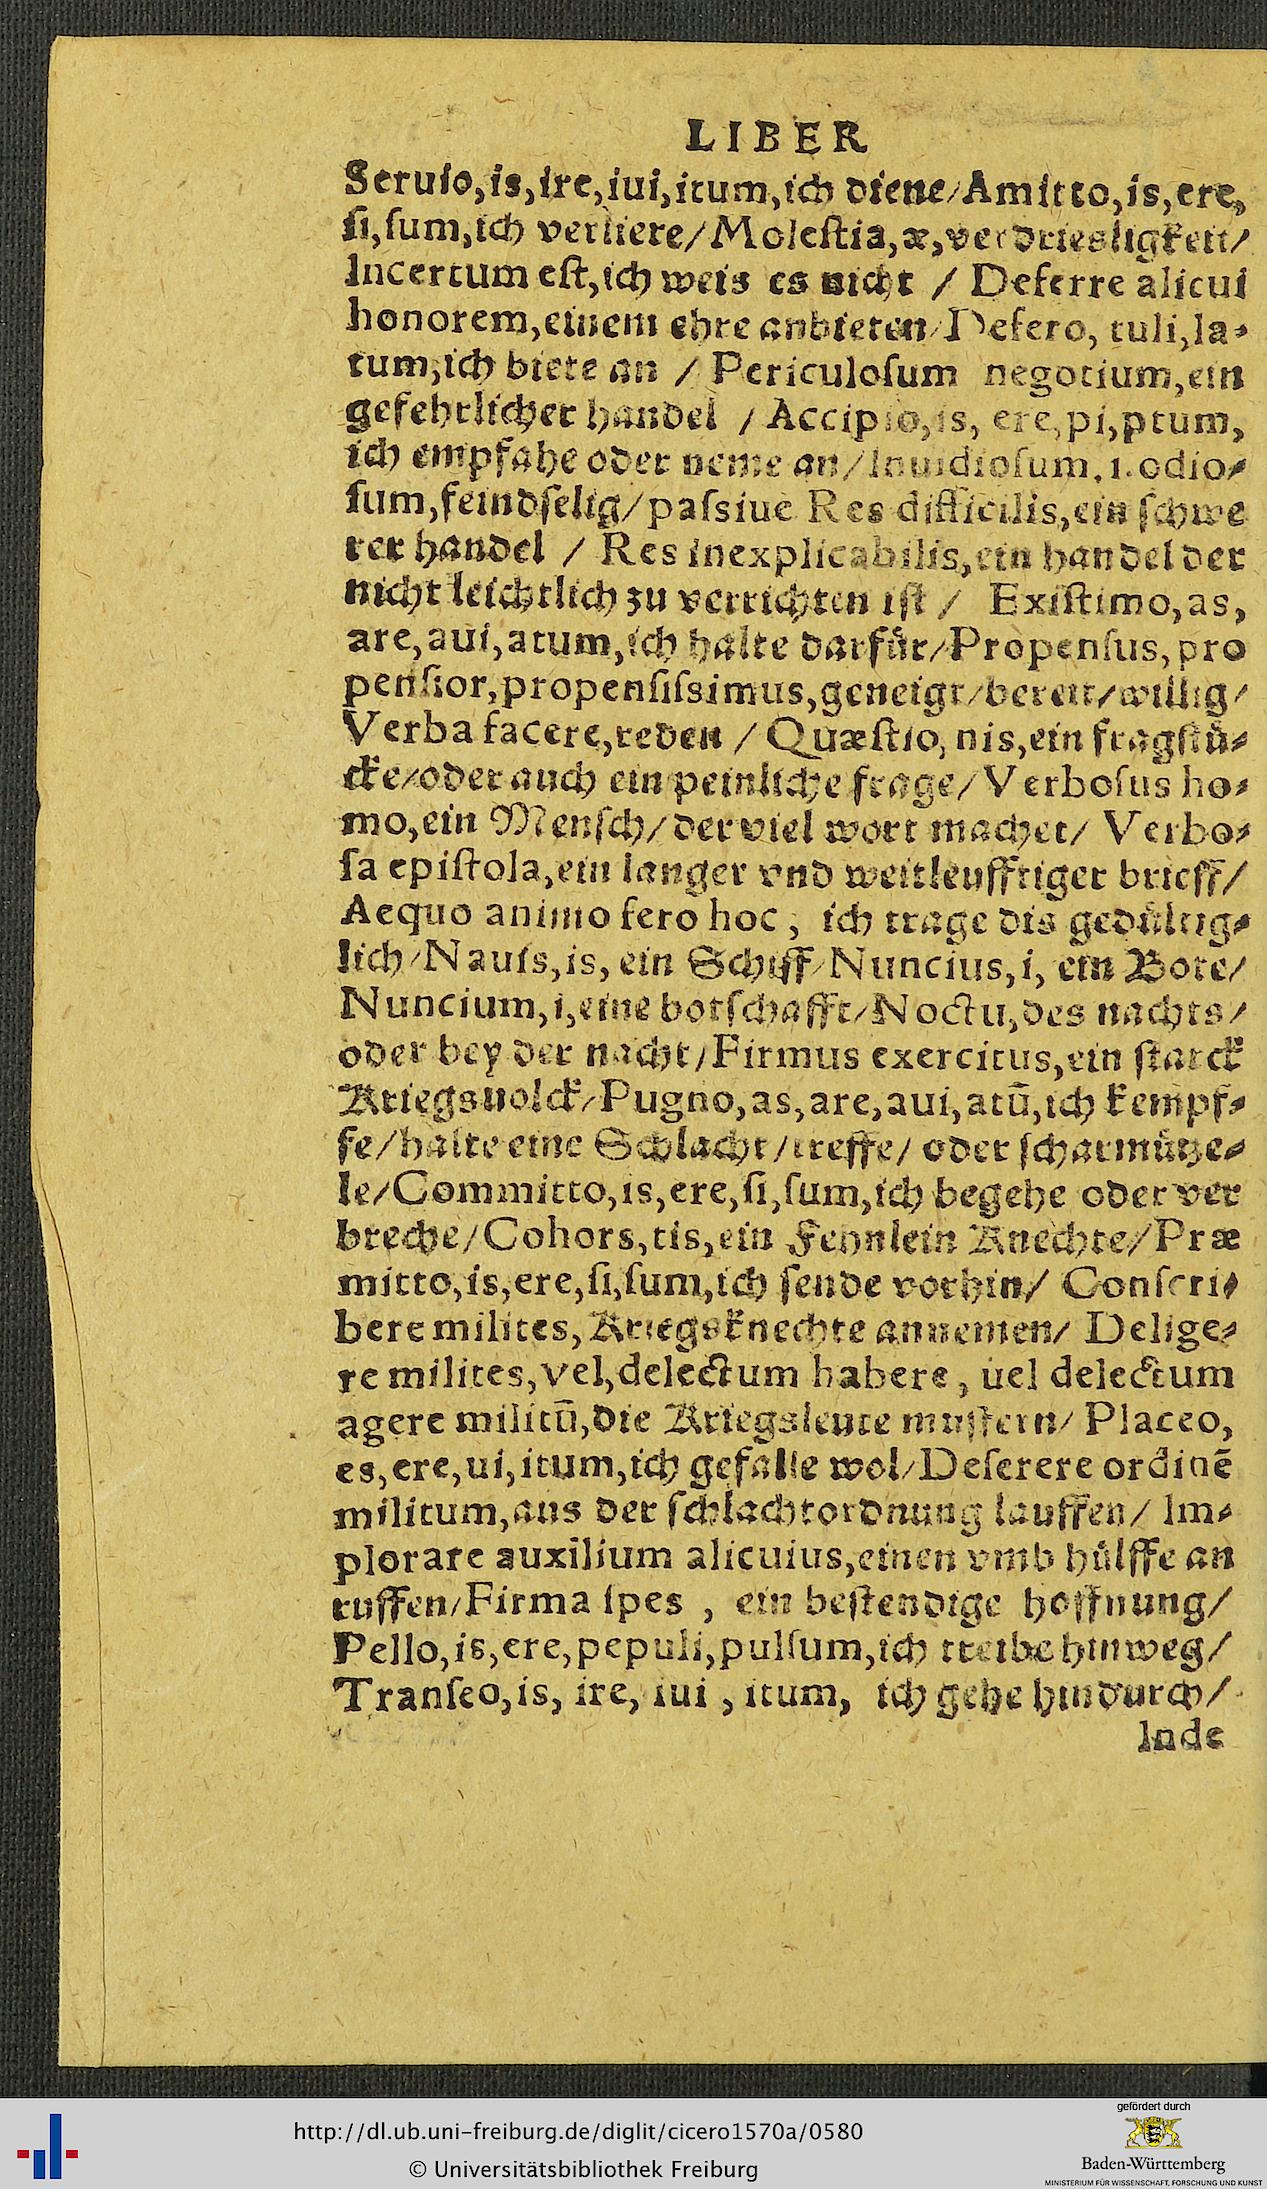 LIBER
Seruio,is,ire,iui,itum,ich diene/Amitto,is,ere,
ſi,ſum,ich verliere/Moleſtia,æ,verdriesligkeit/
Incertum eſt,ich weis es nicht / Deferre alicui
honorem,einem ehre anbieten/Defero, tuli,la⸗
tum,ich biete an / Periculoſum negotium,ein
gefehrlicher handel / Accipio,is, ere,pi,ptum,
ich empfahe oder neme an/Inuidioſum.i.odio⸗
ſum,feindſelig/paſsiue Res difficilis,ein ſchwe
rer handel / Res inexplicabilis,ein handel der
nicht leichtlich zu verrichten iſt / Exiſtimo,as,
are,aui,atum,ich halte darfür/Propenſus,pro
penſior,propenſiſsimus,geneigt/bereit/willig/
Verba facere,reden / Quæſtio,nis,ein fragſtü⸗
cke/oder auch ein peinliche frage/Verboſus ho⸗
mo,ein Menſch/der viel wort machet/ Verbo⸗
ſa epiſtola,ein langer vnd weitleufftiger brieff/
Aequo animo fero hoc, ich trage dis gedültig⸗
lich/Nauis,is, ein Schiff/Nuncius,i, ein Bote/
Nuncium,i,eine botſchafft/Noctu,des nachts/
oder bey der nacht/Firmus exercitus,ein ſtarck
Kriegsuolck/Pugno,as,are,aui,atū,ich kempf⸗
fe/halte eine Schlacht/treffe/ oder ſcharmütze⸗
le/Committo,is,ere,ſi,ſum,ich begehe oder ver
breche/Cohors,tis,ein Fehnlein Knechte/Præ
mitto,is,ere,ſi,ſum,ich ſende vorhin/ Conſcri⸗
bere milites,Kriegsknechte annemen/ Delige⸗
re milites,vel,delectum habere, uel delectum
agere militū,die Kriegsleute muſtern/ Placeo,
es,ere,ui,itum,ich gefalle wol/Deſerere ordinē
militum,aus der ſchlachtordnung lauffen/ Im⸗
plorare auxilium alicuius,einen vmb hülffe an
ruffen/Firma ſpes , ein beſtendige hoffnung/
Pello,is,ere,pepuli,pulſum,ich treibe hinweg/
Tranſeo,is, ire, iui , itum, ich gehe hindurch/
Inde
http://dl.ub.uni-freiburg.de/diglit/cicero1570a/0580
© Universitätsbibliothek Freiburg
gefördert durch
Baden-Württemberg
MINISTERIUM FÜR WISSENSCHAFT, FORSCHUNG UND KUNST